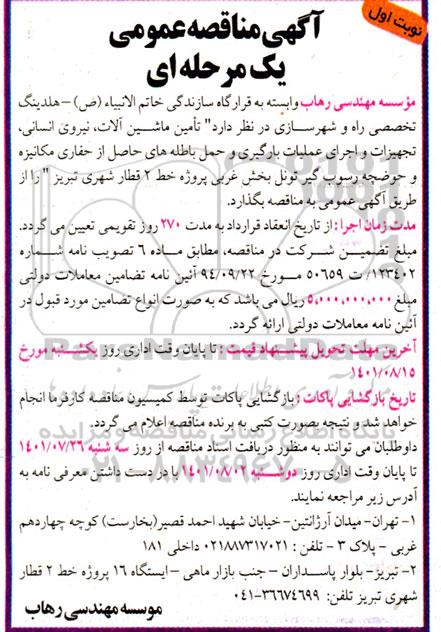 نوبت اول
آگهی مناقصه عمومی
یک مرحله ای
مؤسسه مهندسی رهاب وابسته به قرارگاه سازندگی خاتم الانبیاء (ص) – هلدینگ
تخصصی راه و شهرسازی در نظر دارد" تأمین ماشین آلات، نیروی انسانی،
تجهیزات و اجرای عملیات بارگیری و حمل باطله های حاصل از حفاری مکانیزه
و حوضچه رسوب گیر تونل بخش غربی پروژه خط ۲ قطار شهری تبریز " را از
طریق آگهی عمومی به مناقصه بگذارد.
مدت زمان اجرا : از تاریخ انعقاد قرارداد به مدت ۲۷۰ روز تقویمی تعیین می گردد.
مبلغ تضمین شرکت در مناقصه، مطابق ماده ۶ تصویب نامه شماره
۱۲۳۴۰۲/ ت ۵۰۶۵۹ مورخ ۹۴/۰۹/۲۲ آئین نامه تضامین معاملات دولتی
مبلغ ۵,۰۰۰,۰۰۰,۰۰۰ ریال می باشد که به صورت انواع تضامین مورد قبول در
آئین نامه معاملات دولتی ارائه گردد.
آخرین مهلت تحویل پیشنهاد قیمت : تا پایان وقت اداری روز یکشنبه مورخ
۱۴۰۱/۰۸/۱۵
تاریخ بازگشایی پاکات : بازگشایی پاکات توسط کمیسیون مناقصه کارفرما انجام
خواهد شد و نتیجه بصورت کتبی به برنده مناقصه اعلام می گردد.
داوطلبان می توانند به منظور دریافت اسناد مناقصه از روز سه شنبه ۱۴۰۱/۰۷/۲۶
تا پایان وقت اداری روز دوشنبه ۱۴۰۱/۰۸/۰۲ با در دست داشتن معرفی نامه به
آدرس زیر مراجعه نمایند.
۱- تهران- میدان آرژانتین- خیابان شهید احمد قصیر(بخارست) کوچه چهاردهم
غربی - پلاک ۳ - تلفن : ۰۲۱۸۸۷۳۱۷۰۲۱ داخلی ۱۸۱
۲- تبریز- بلوار پاسداران - جنب بازار ماهی - ایستگاه ۱۶ پروژه خط ۲ قطار
شهری تبریز تلفن: ۳۶۶۷۴۶۹۹-۰۴۱
موسسه مهندسی رهاب